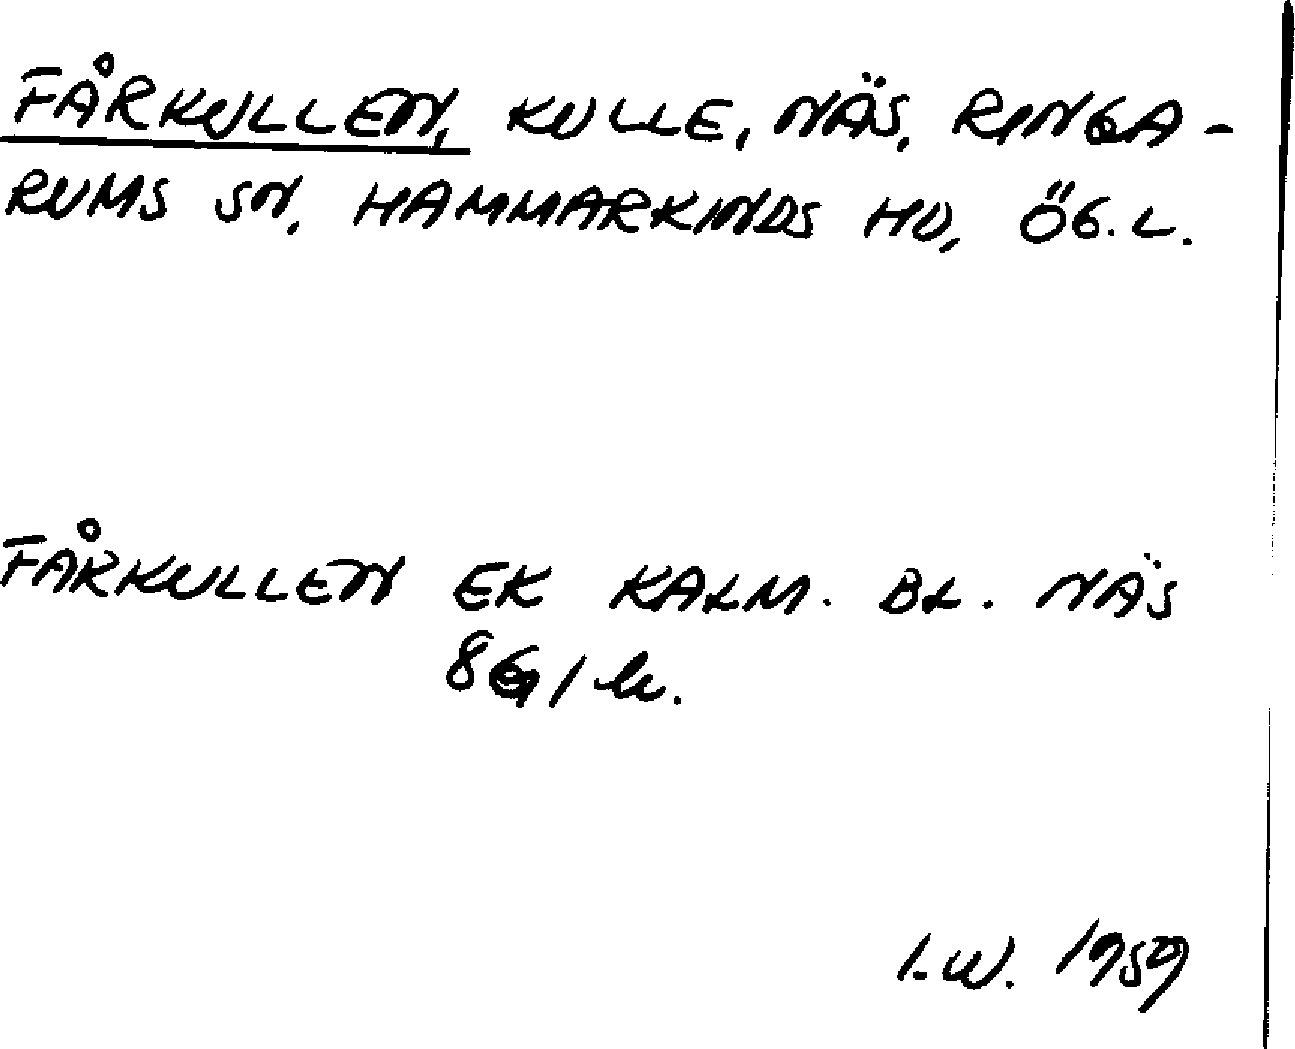 FÅRKULLEN, KULLE, NÄS, RINGA-
RUMS SN, HAMMARKINDS HD, ÖG. L.
FÅRKULLEN EK KALM. BL. NÄS
I.W. 1959